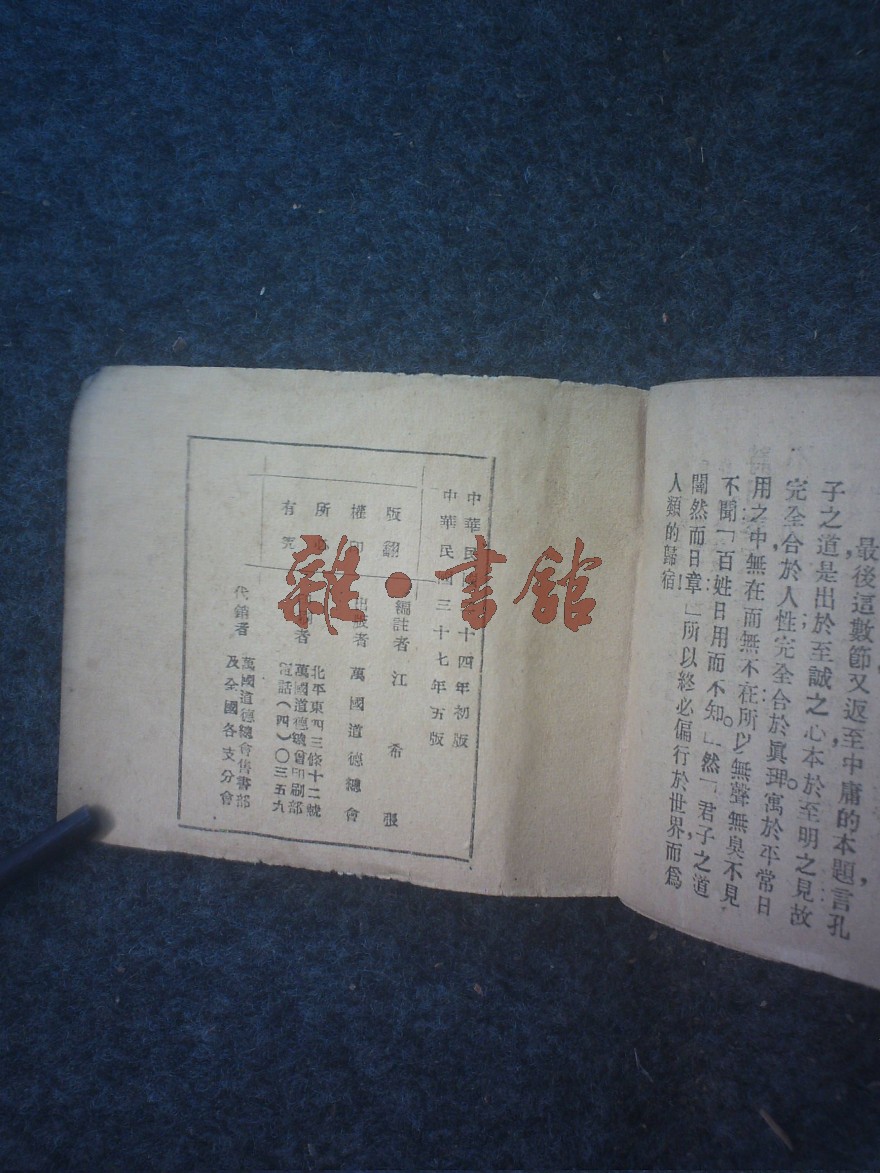 最後這數節又返至中庸的本題，言孔
子之道是出於至誠之心本於至明之見故
完全合於人性；完全合於眞理。寓於平常日
用之中，無在而無不在所以無聲無臭不見
不聞「百姓日用而不知。」然「君子之道，
闇然而日章：」所以終必偏行於世界，而爲
人類的歸宿！
中華民 十四年初版
中華民國三十七年五版
版權所有
翻印 究
編註者 江希張
出版者 萬國道德總會
者 萬國道德總會印刷部
北平東四三條十二號
電話（四）〇三五九
代銷者 萬國道德總會售書部
及全國各支分會
雜·書館